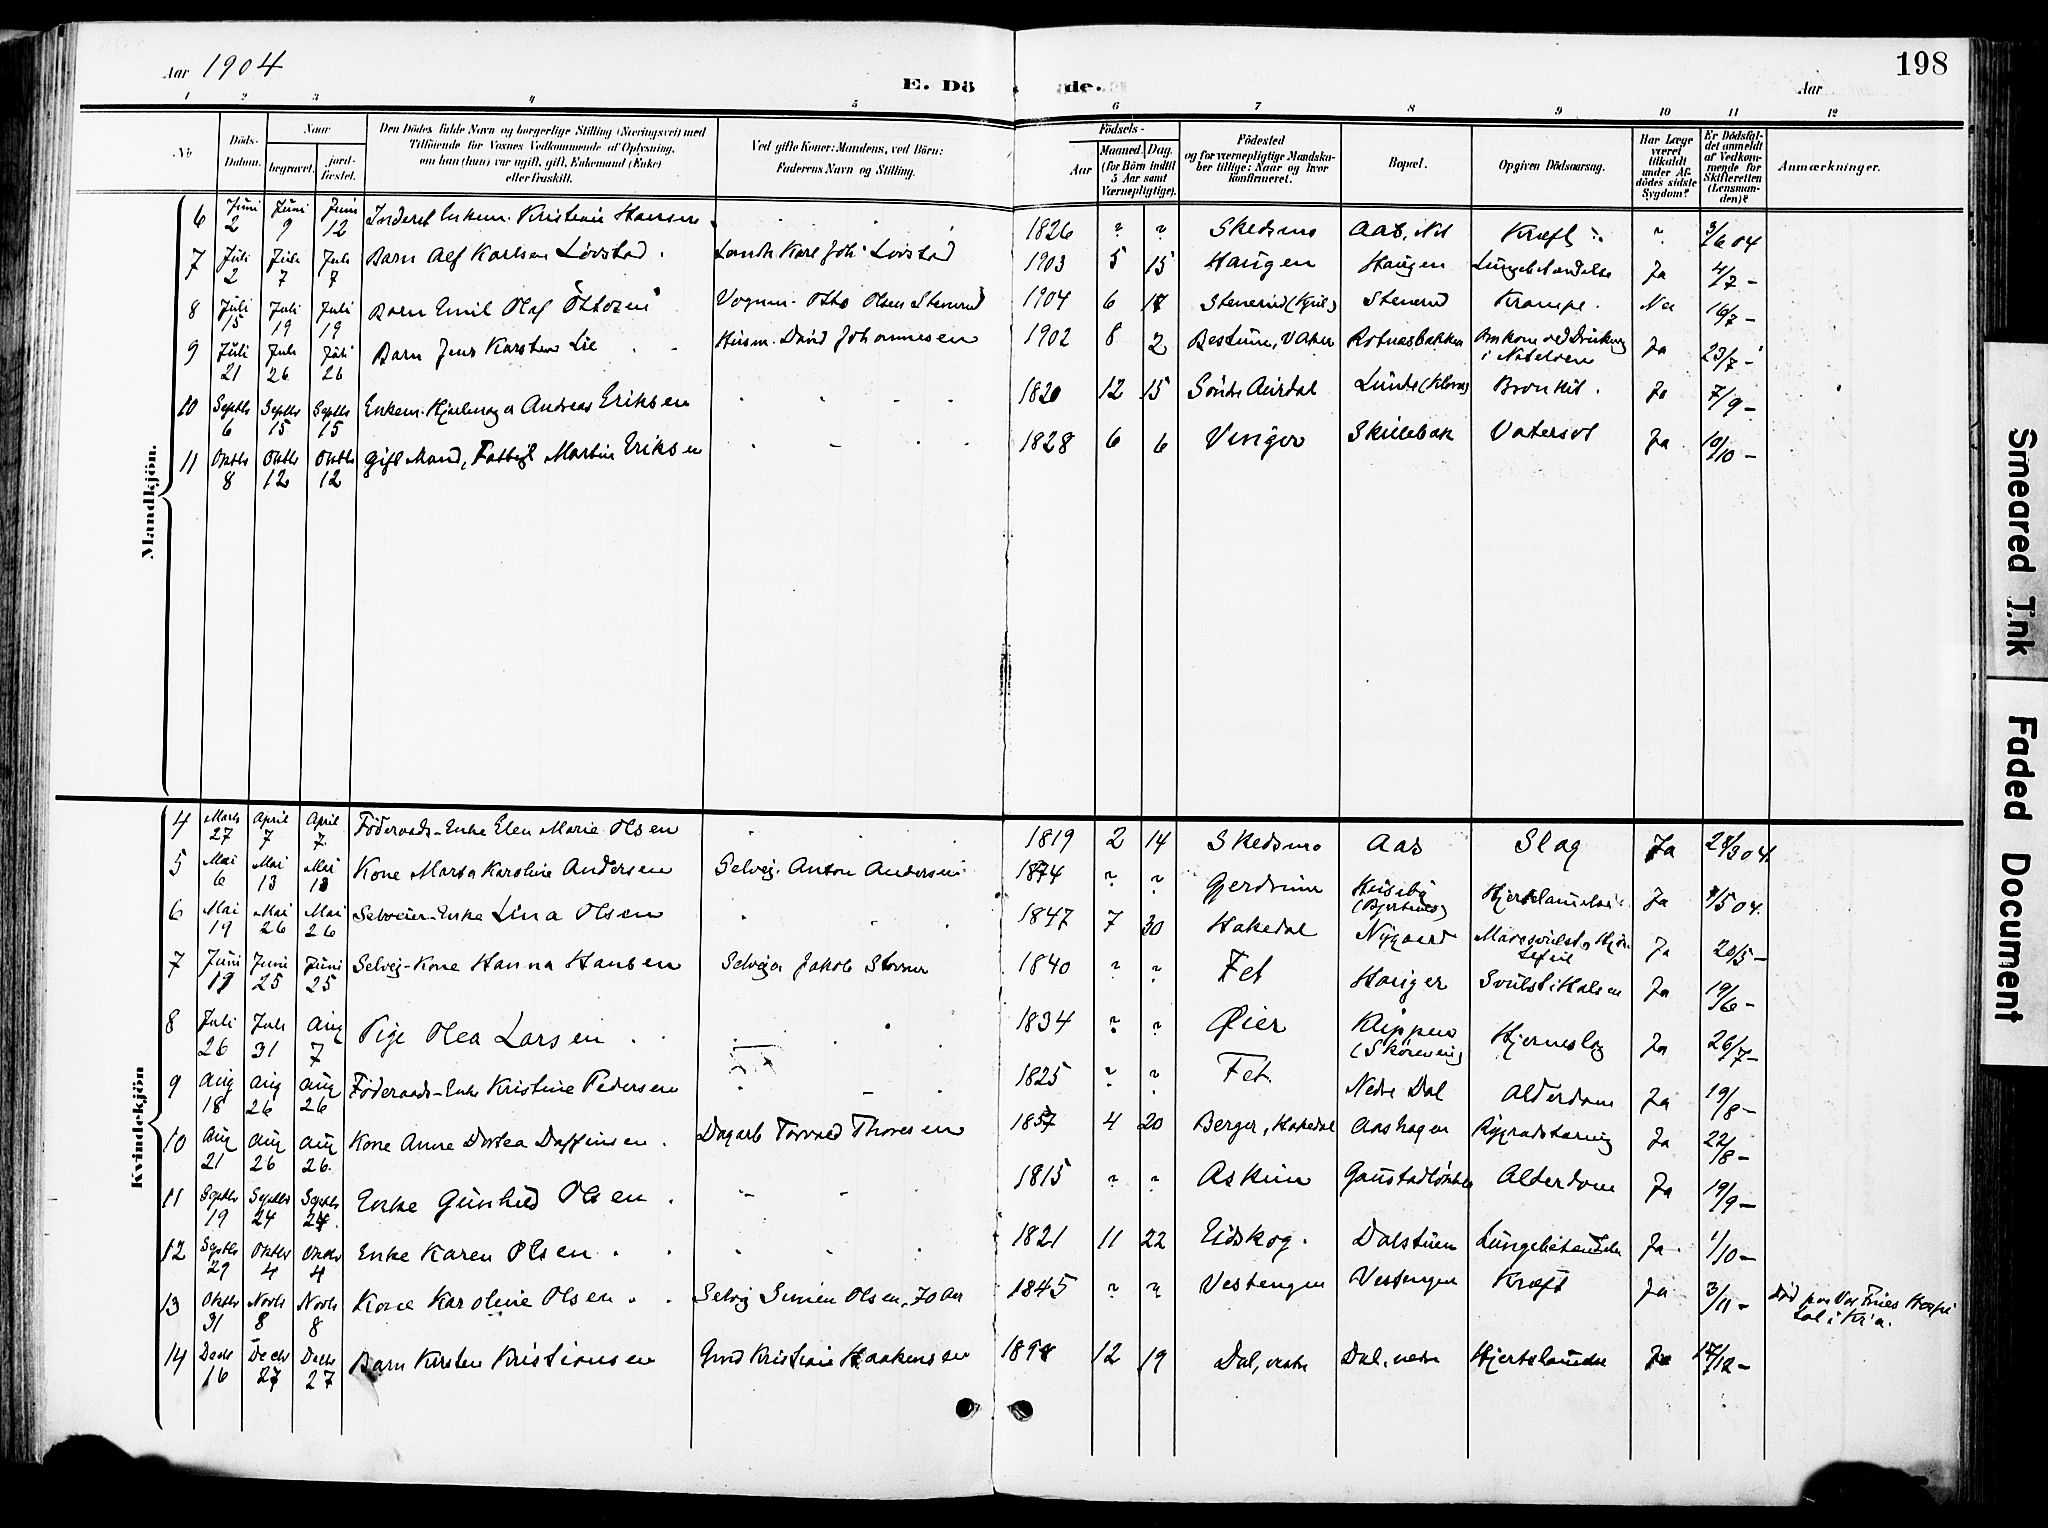 Aar 1904
E. Dö de.
Aar
198
1 2 3 4 5 6 7 8 9 10 11 12
No.
Döds-Datum.
Naar
begravet.
jord-fæstet.
Den Dödes fulde Navn og borgerlige Stilling (Næringsvei) med
Tilföiende for Voxnes Vedkommende af Oplysning,
om han (hun) var ugift, gift, Enkemand (Enke)
eller fraskilt.
Ved gifte Koner: Mandens, ved Börn:
Faderens Navn og Stilling.
Födsels-
Aar
Maaned. Dag.
(for Börn indtil
5 Aar samt
Værnepligtige).
Födested
og for værnepligtige Mandska-
ber tillige: Naar og hvor
konfirmeret.
Bopæl.
Opgiven Dödsaarsag.
Har Læge
været
tilkaldt
under Af-
dödes sidste
Sygdom?
Er Dödsfal-
det anmeldt
af Vedkom-
mende for
Skifteretten
(Lensman-
den)?
Anmærkninger.
Mandkjön.
6 Juni 2 Juni 9 Juni 12 Inderst Enkem. Kristian Hansen 1826 ? ? Skedsmo Aas, Nit Kræft ? 3/6 04
7 Juli 2 Juli 7 Juli 7 Barn Alf Karlsen Lövstad Landh. Karl Joh. Lövstad 1903 5 15 Haugen Haugen Lungebetændelse Ja 4/7 -
8 Juli 15 Juli 19 Juli 19 Barn Emil Olaf Ottosen Vognm. Otto Olsen Stenrud 1904 6 17 Stenerud Stenerud Krampe. Nei 16/7 -
9 Juli 21 Juli 26 Juli 26 Barn Jens Karsten Lie Husm. David Johannesen 1902 8 2 Bestum, V Aker Rotnesbakken Omkom ved Drukning i Nitelven Ja 23/7 -
10 Septbr 6 Septbr 15 Septbr 15 Enkem. Hjulmager Andreas Eriksen 1820 12 15 Söndre Aurdal Lunde Bronkit. Ja 7/9 -
11 Oktbr 8 Oktbr 12 Oktbr 12 gift Mand, Fattigl Martin Eriksen 1828 6 6 Vinger Skillebæk Vatersot Ja 10/10 -
Kvindekjön
4 Marts 27 April 7 April 7. Föderaads-Enke Elen Marie Olsen 1819 2 14 Skedsmo Aas Slag Ja 28/3 04
5 Mai 6 Mai 13 Mai 13 Kone Marta Karoline Andersen Selvej. Anton Andersen 1874 ? ? Gjerdrum Huseby Hjertelammelse Ja 9/5 04.
6 Mai 19 Mai 26 Mai 26 Selveier-Enke Lina Olsen 1847 7 30 Hakedal Nygaard Mavesvulst og Hjertefeil Ja 20/5 -
7 Juni 19 Juni 25 Juni 25 Selvej-Kone Hanna Hansen Selvejer Jakob Stovner 1840 ? ? Fet Hauger Svulst i Halsen Ja 19/6 -
8 Juli 26 Juli 31 Aug 7 Pige Olea Larsen 1834 ? ? Øier Klippen Hjerneslag Ja 26/7 -
9 Aug 18 Aug 26 Aug 26 Föderaads-Enke Kristine Pedersen 1825 ? ? Fet. Nedre Dal Alderdom Ja 19/8 -
10 Aug 21 Aug 26 Aug 26. Kone Anne Dortea Daffinsen Dagarb Torvald Thoresen 1857 4 20 Berger, Hakedal Aashagen Rygradstæring Ja 22/8 -
11 Septbr 19 Septbr 24 Septbr 24. Enke Gunhild Olsen 1815 ? ? Askim Gaustadlökken Alderdom Ja 19/9 -
12 Septbr 29 Oktbr 4 Oktbr 4 Enke Karen Olsen 1821 11 22 Eidskog. Dalstuen Lungebetændelse Ja. 1/10 -
13 Oktbr 31 Novbr 8 Novbr 8 Kone Karoline Olsen Selvej Simen Olsen, 70 Aar 1845 ? ? Vestengen Vestengen Kræft Ja 3/11 - Död paa Vor Frues Hospital i Kr.a.
14 Decbr 16 Decbr 27 Decbr 27 Barn Kirsten Kristiansen Grnd Kristian Haakensen 1898 12 19 Dal, nedre Dal, nedre Hjertelammelse Ja 17/12 -
Smeared Ink
Faded Document